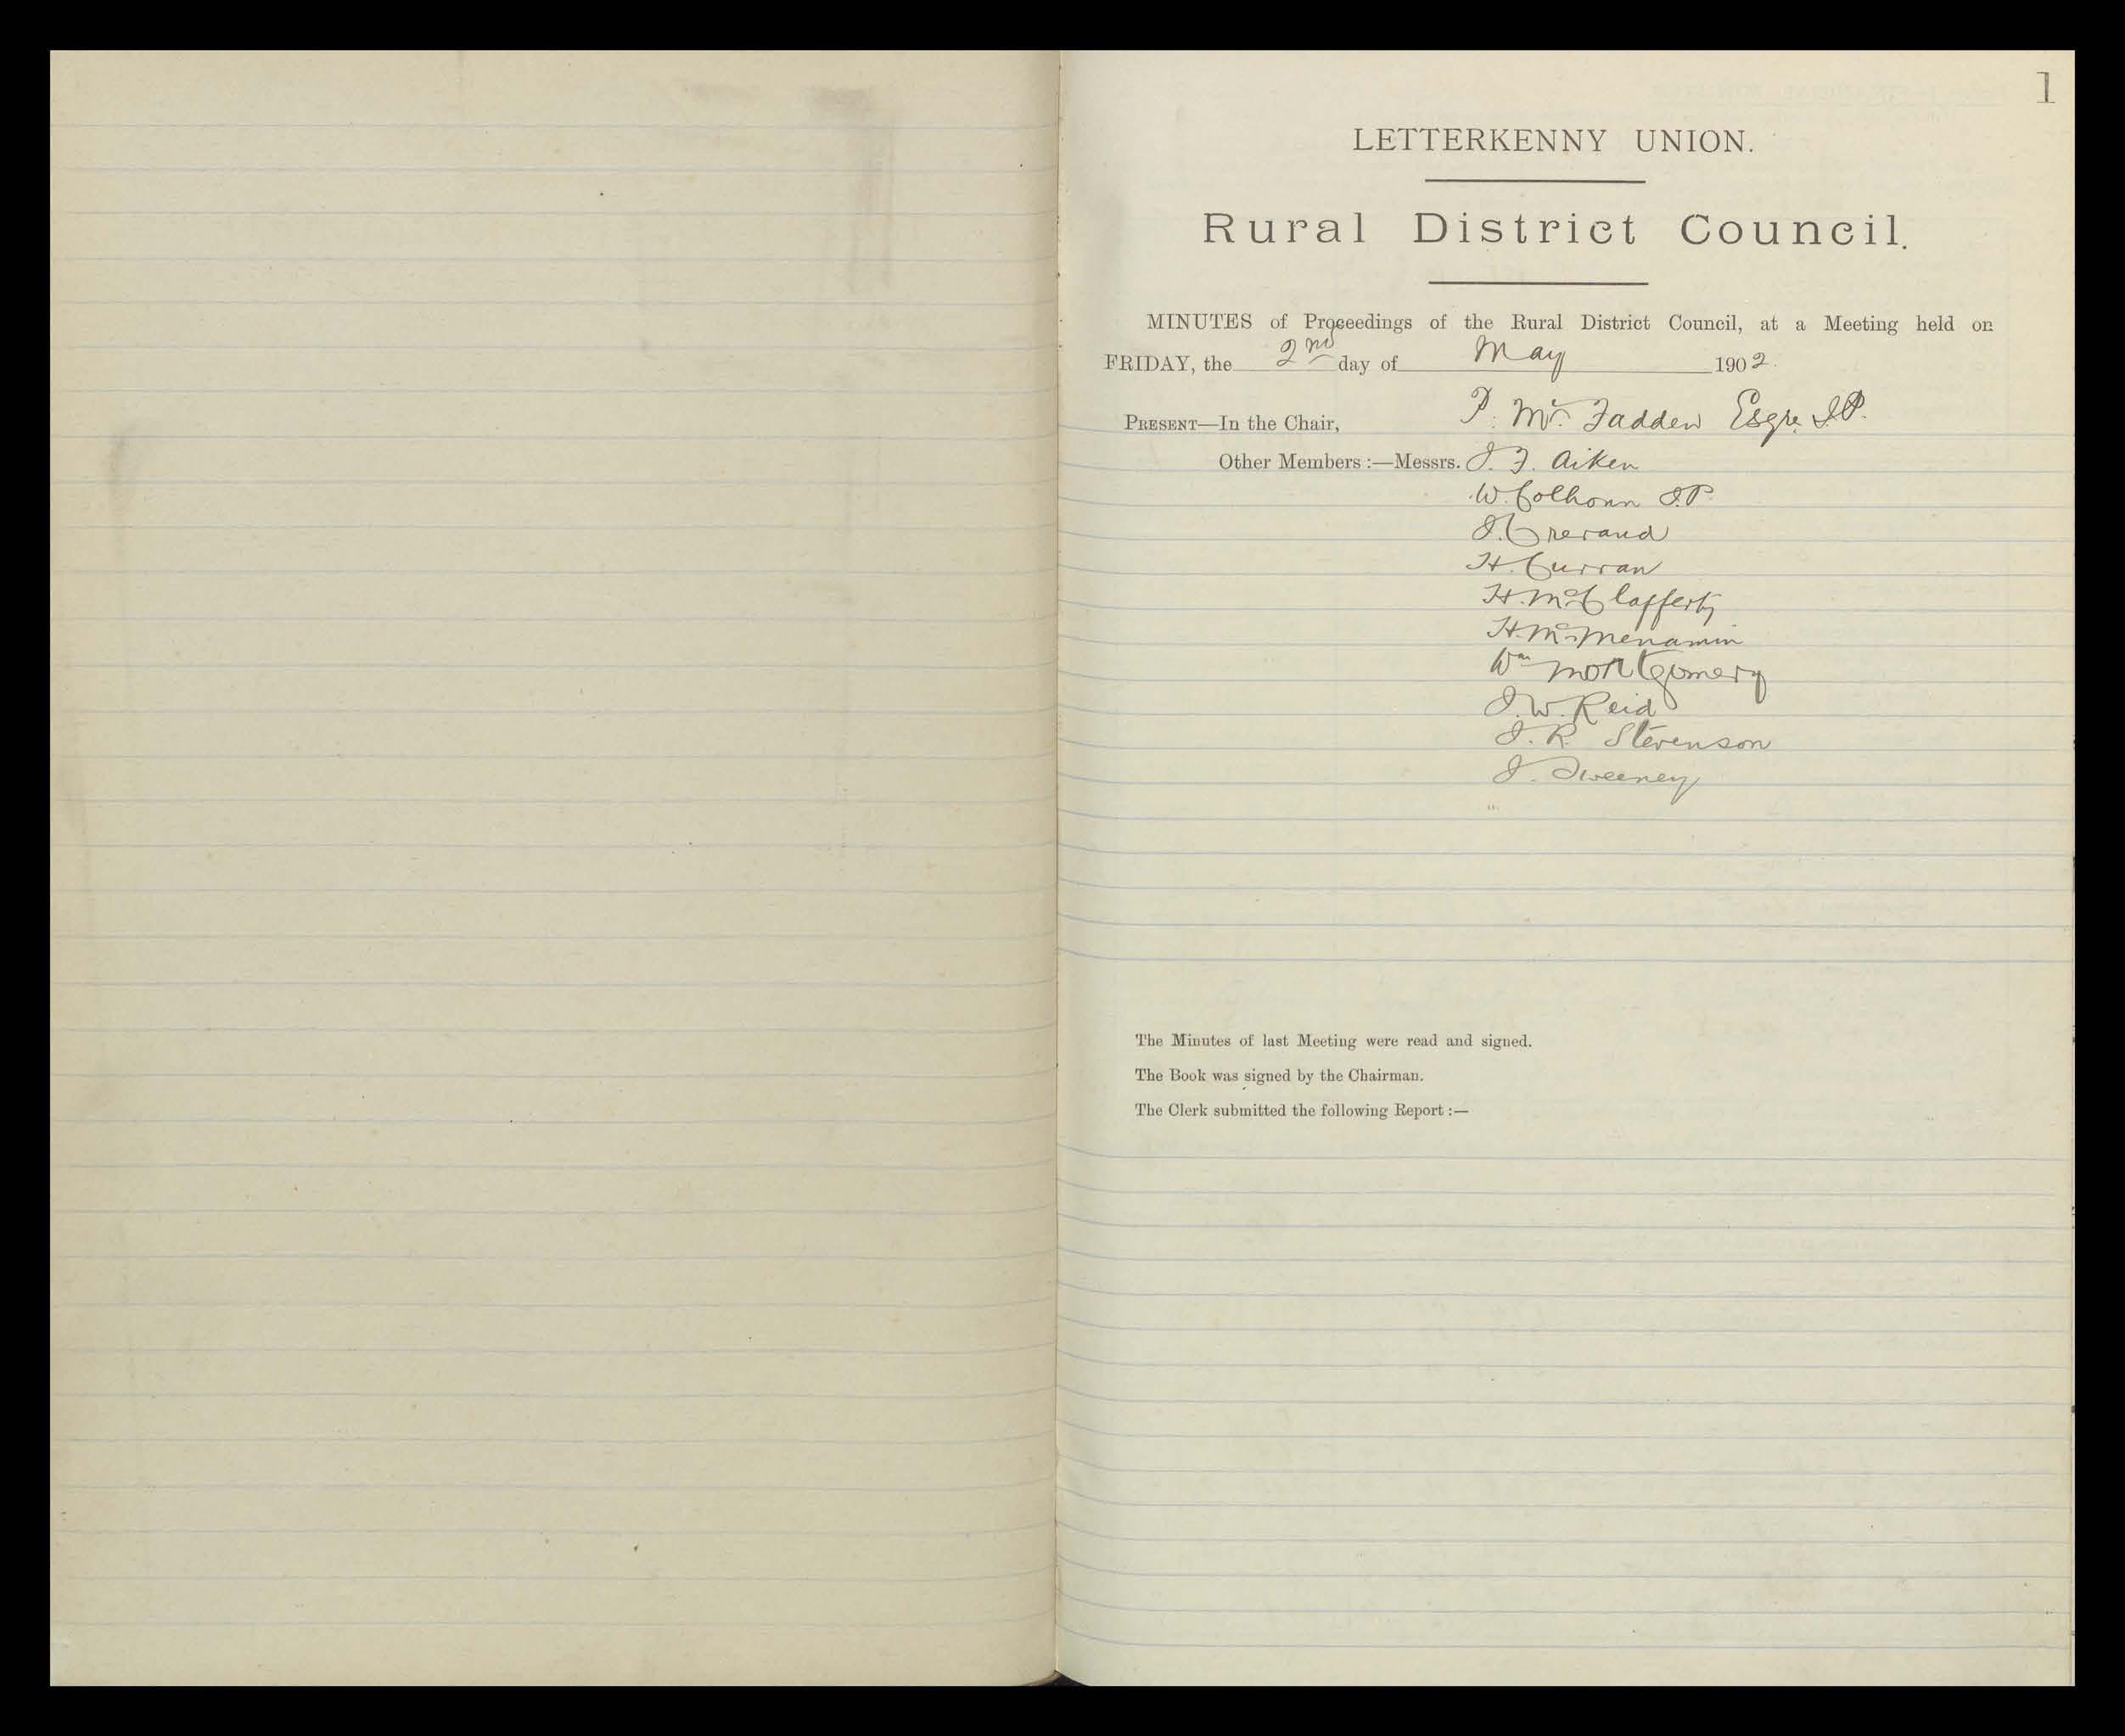 1
LETTERKENNY UNION.
Rural District Council.
MINUTES of Proceedings of the Rural District Council, at a Meeting held on
FRIDAY, the 2nd day of May 1902.
PRESENT—In the Chair, P. Mc Fadden Esqre J.P.
Other Members :—Messrs. J. F. Aiken
W. Colhoun J.P.
J. Crerand
H. Curran
H. McClafferty
H. McMenamin
Wm Montgomery
J. W. Reid
J. R. Stevenson
J. Sweeney
The Minutes of last Meeting were read and signed.
The Book was signed by the Chairman.
The Clerk submitted the following Report :—